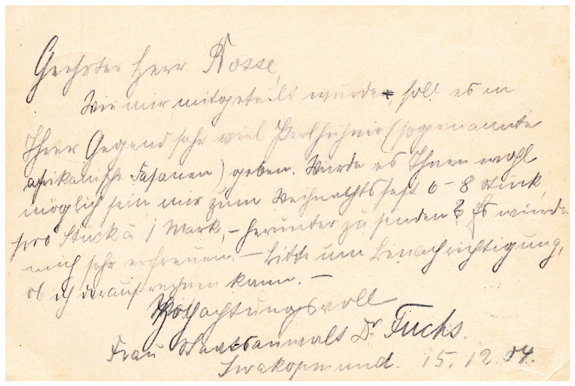 Geehrter Herr Rosse,
Wie mir mitgeteilt wurde, soll es in
Ihrer Gegend sehr viel Perlhühner (sogenannte
afrikanische Fasanen) geben. Würde es Ihnen wohl
möglich sein mir zum Weihnachtsfest 6-8 Stück,
pro Stück à 1 Mark,- herunter zu senden? Es würde
mich sehr erfreuen. - Bitte um Benachrichtigung,
ob ich darauf rechnen kann. -
Hochachtungsvoll
Frau Staatsanwalt Dr. Fuchs.
Swakopmund. 15.12.04.